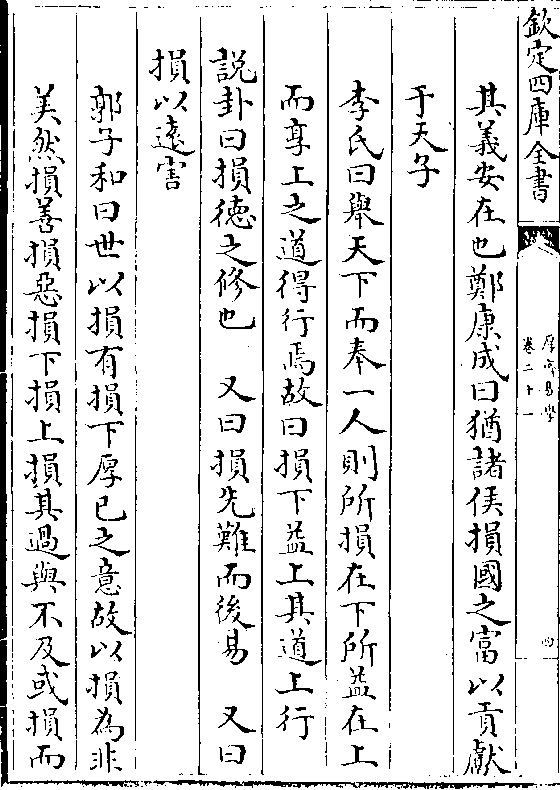 欽定四庫全書
厚齋易學
卷二十一
四
其義安在也鄭康成曰猶諸侯損國之富以貢獻
于天子
李氏曰舉天下而奉一人則所損在下所益在上
而享上之道得行焉故曰損下益上其道上行
說卦曰損德之修也　又曰損先難而後易　又曰
損以遠害
郭子和曰世以損有損下厚已之意故以損為非
美然損善損惡損下損上損其過與不及或損而